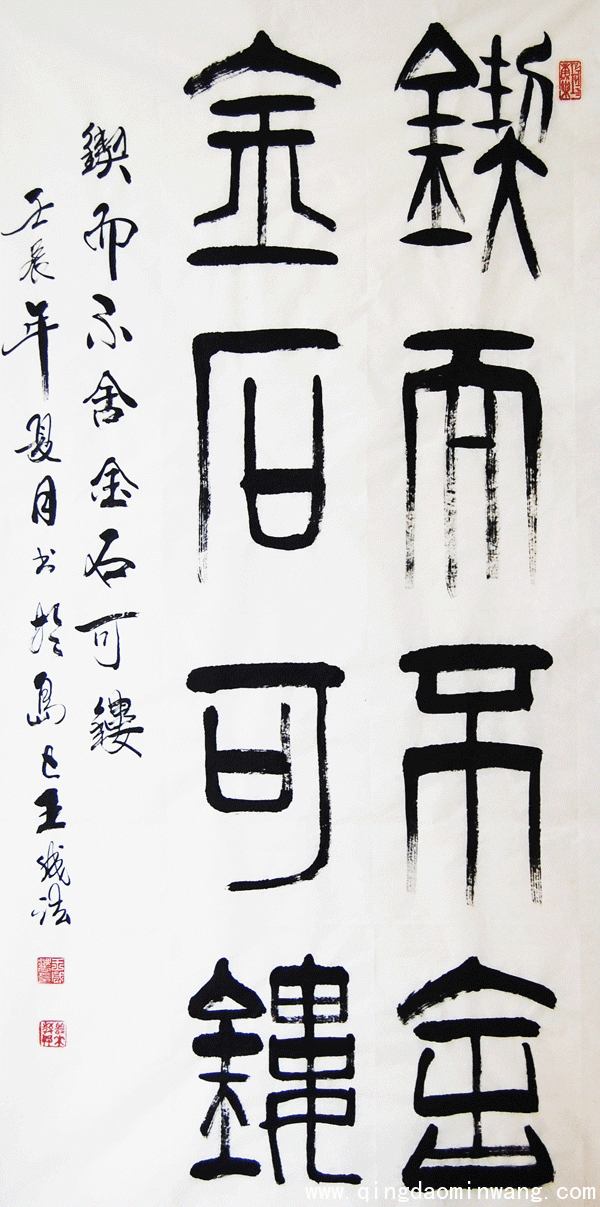 鍥而不舍
金石可鏤
鍥而不舍金石可鏤
壬辰年夏月书於島上王法
www.qingdaominwang.com